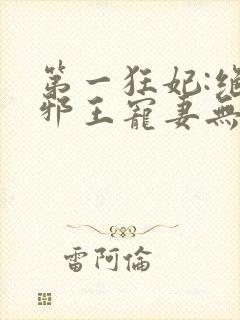 第一狂妃:絕
邪王寵妻無
雷阿倫